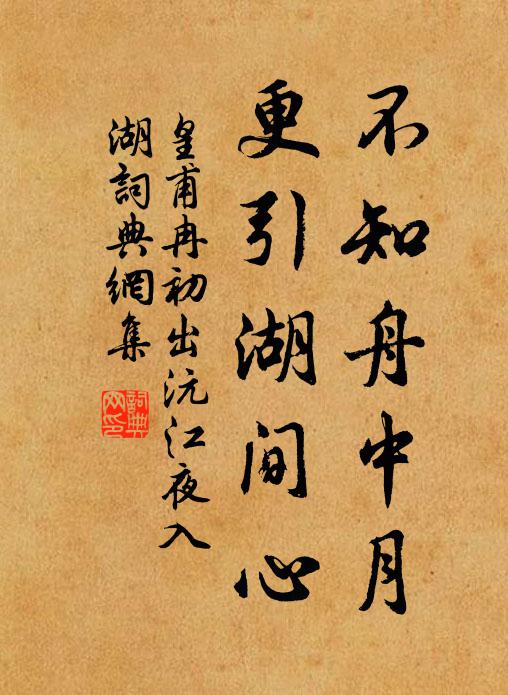 不知舟中月
更引湖間心
皇甫冉初出沅江夜入
湖詞典網集
詞典
网印